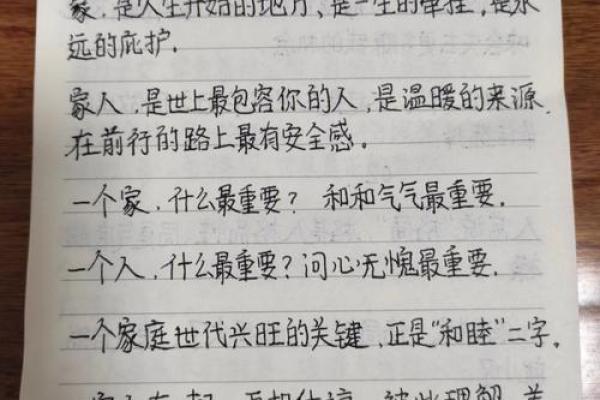 家，是人生开始的地方、是一生的牵挂，是永
远的庇护.
家人，是世上最包容你的人，是温暖的来源.
在前行的路上最有安全感。
一个家，什么最重要？和和气气最重要.
一个人，什么最重要？问心无愧最重要.
一个家庭世代兴旺的关键，正是“和睦”二字.